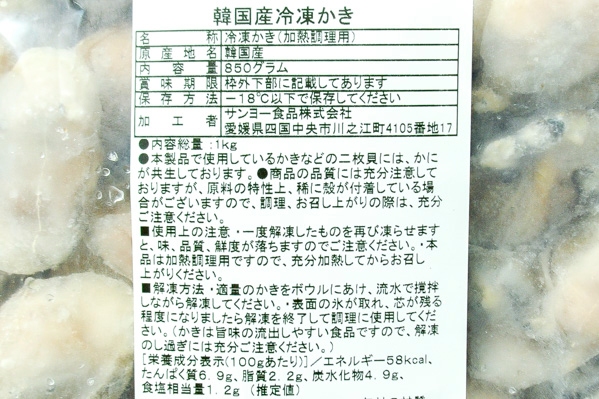 韓国産冷凍かき
名 称 冷凍かき(加熱調理用)
原産地名 韓国産
内容量 850グラム
賞味期限 枠外下部に記載してあります
保存方法 －18℃以下で保存してください
加工者 サンヨー食品株式会社
愛媛県四国中央市川之江町4105番地17
●内容総量:1kg
●本製品で使用しているかきなどの二枚貝には、かに
が共生しております。●商品の品質には充分注意して
おりますが、原料の特性上、稀に殻が付着している場
合がございますので、調理、お召し上がりの際は、充分
ご注意ください。
■使用上の注意・一度解凍したものを再び凍らせます
と、味、品質、鮮度が落ちますのでご注意ください。・本
品は加熱調理用ですので、充分加熱してからお召し
上がりください。
■解凍方法・適量のかきをボウルにあけ、流水で撹拌
しながら解凍してください。・表面の氷が取れ、芯が残る
程度になりましたら解凍を終了して調理に使用してくだ
さい。(かきは旨味の流出しやすい食品ですので、解凍
のし過ぎには充分ご注意ください。)
[栄養成分表示(100gあたり)]／エネルギー58kcal、
たんぱく質6.9g、脂質2.2g、炭水化物4.9g、
食塩相当量1.2g (推定値)